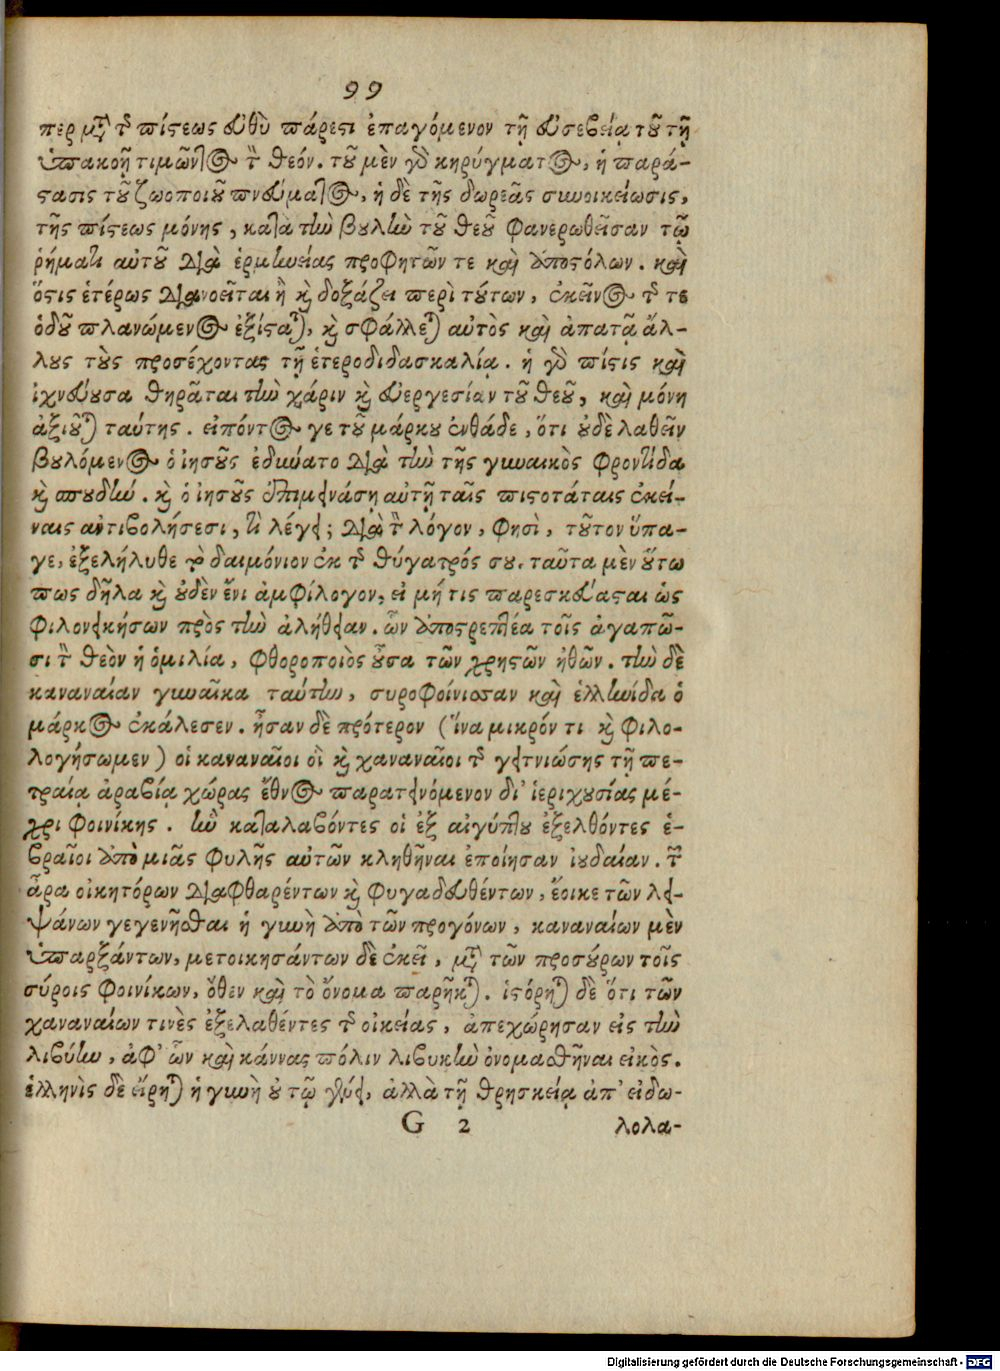 99
περ μετὰ τῆς πίστεως εὐθὺ πάρεστι ἐπαγόμενον τῇ εὐσεβείᾳ τοῦ τῇ
ὑπακοῇ τιμῶντος τὸν θεόν. τοῦ μὲν γὸ κηρύγματος, ἡ παρά-
στασις τοῦ ζωοποιοῦ πνεύματος, ἡ δὲ τῆς δωρεᾶς συνοικείωσις,
τῆς πίστεως μόνης, κατὰ τὴν βουλὴν τοῦ θεοῦ φανερωθεῖσαν τῷ
ῥήματι αὐτοῦ διὰ ἑρμηνείας προφητῶν τε καὶ ἀποστόλων. καὶ
ὅστις ἑτέρως διανοεῖται ἢ καὶ δοξάζει περὶ τούτων, ἐκεῖνος τῆς τε
ὁδοῦ πλανώμενος ἐξίσταται, καὶ σφάλλεται αὐτὸς καὶ ἀπατᾷ ἄλ-
λους τοὺς προσέχοντας τῇ ἑτεροδιδασκαλίᾳ. ἡ γὸ πίστις καὶ
ἰχνεύουσα θηρᾶται τὴν χάριν καὶ εὐεργεσίαν τοῦ θεοῦ, καὶ μόνη
ἀξιοῦται ταύτης. εἰπόντος γε τοῦ μάρκου ἐνθάδε, ὅτι οὐδὲ λαθεῖν
βουλόμενος ὁ ἰησοῦς ἐδύνατο διὰ τὴν τῆς γυναικὸς φροντίδα
καὶ σπουδήν. καὶ ὁ ἰησοῦς ἐπιμειγνάσῃ αὐτῇ ταῖς πιστοτάταις ἐκεί-
ναις ἀντιβολήσεσι, τί λέγει; διὰ τὸν λόγον, φησὶ, τοῦτον ὕπα-
γε, ἐξελήλυθε τὸ δαιμόνιον ἐκ τῆς θύγατρός σου. ταῦτα μὲν οὕτω
πως δῆλα καὶ οὐδὲν ἔνι ἀμφίλογον, εἰ μή τις παρεσκεύασται ὡς
φιλονεικήσων πρὸς τὴν ἀλήθειαν. ὧν ἀποστρεπτέα τοῖς ἀγαπῶ-
σι τὸν θεὸν ἡ ὁμιλία, φθοροποιὸς οὖσα τῶν χρηστῶν ἠθῶν. τὴν δὲ
καναναίαν γυναῖκα ταύτην, συροφοίνισσαν καὶ ἑλληνίδα ὁ
μάρκος ἐκάλεσεν. ἦσαν δὲ πρότερον (ἵνα μικρόν τι καὶ φιλο-
λογήσωμεν) οἱ καναναῖοι οἳ καὶ χαναναῖοι τῆς γειτνιώσης τῇ πε-
τραίᾳ ἀραβίᾳ χώρας ἔθνος παρατεινόμενον δι' ἱεριχουσίας μέ-
χρι φοινίκης. ἣν καταλαβόντες οἱ ἐξ αἰγύπτου ἐξελθόντες ἑ-
βραῖοι ἀπὸ μιᾶς φυλῆς αὐτῶν κληθῆναι ἐποίησαν ἰουδαίαν. τῶν
ἄρα οἰκητόρων διαφθαρέντων καὶ φυγαδευθέντων, ἔοικε τῶν λει-
ψάνων γεγενῆσθαι ἡ γυνὴ ἀπὸ τῶν προγόνων, καναναίων μὲν
ὑπαρξάντων, μετοικησάντων δὲ ἐκεῖ, μετὰ τῶν προσούρων τοῖς
σύροις φοινίκων, ὅθεν καὶ τὸ ὄνομα παρῆκται. ἱστόρηται δὲ ὅτι τῶν
χαναναίων τινὲς ἐξελαθέντες τῆς οἰκείας, ἀπεχώρησαν εἰς τὴν
λιβύην, ἀφ' ὧν καὶ κάννας πόλιν λιβυκὴν ὀνομασθῆναι εἰκός.
ἑλληνὶς δὲ εἴρηται ἡ γυνὴ οὐ τῷ γένει, ἀλλὰ τῇ θρησκείᾳ ἀπ' εἰδω-
G 2 λολα-
Digitalisierung gefördert durch die Deutsche Forschungsgemeinschaft - DFG